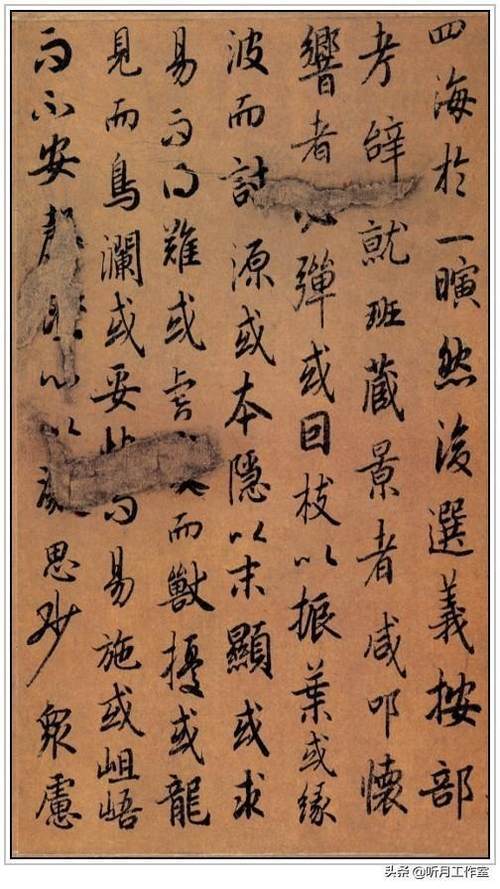 四海於一瞚然後選義按部
考辞就班藏景者咸叩懷
響者彈或因枝以振葉或緣
波而討源或本隱以末顯或求
易而得難或而獸擾或龍
見而鳥瀾或妥而易施或岨峿
而不安心以思眇衆慮
头条 @听月工作室